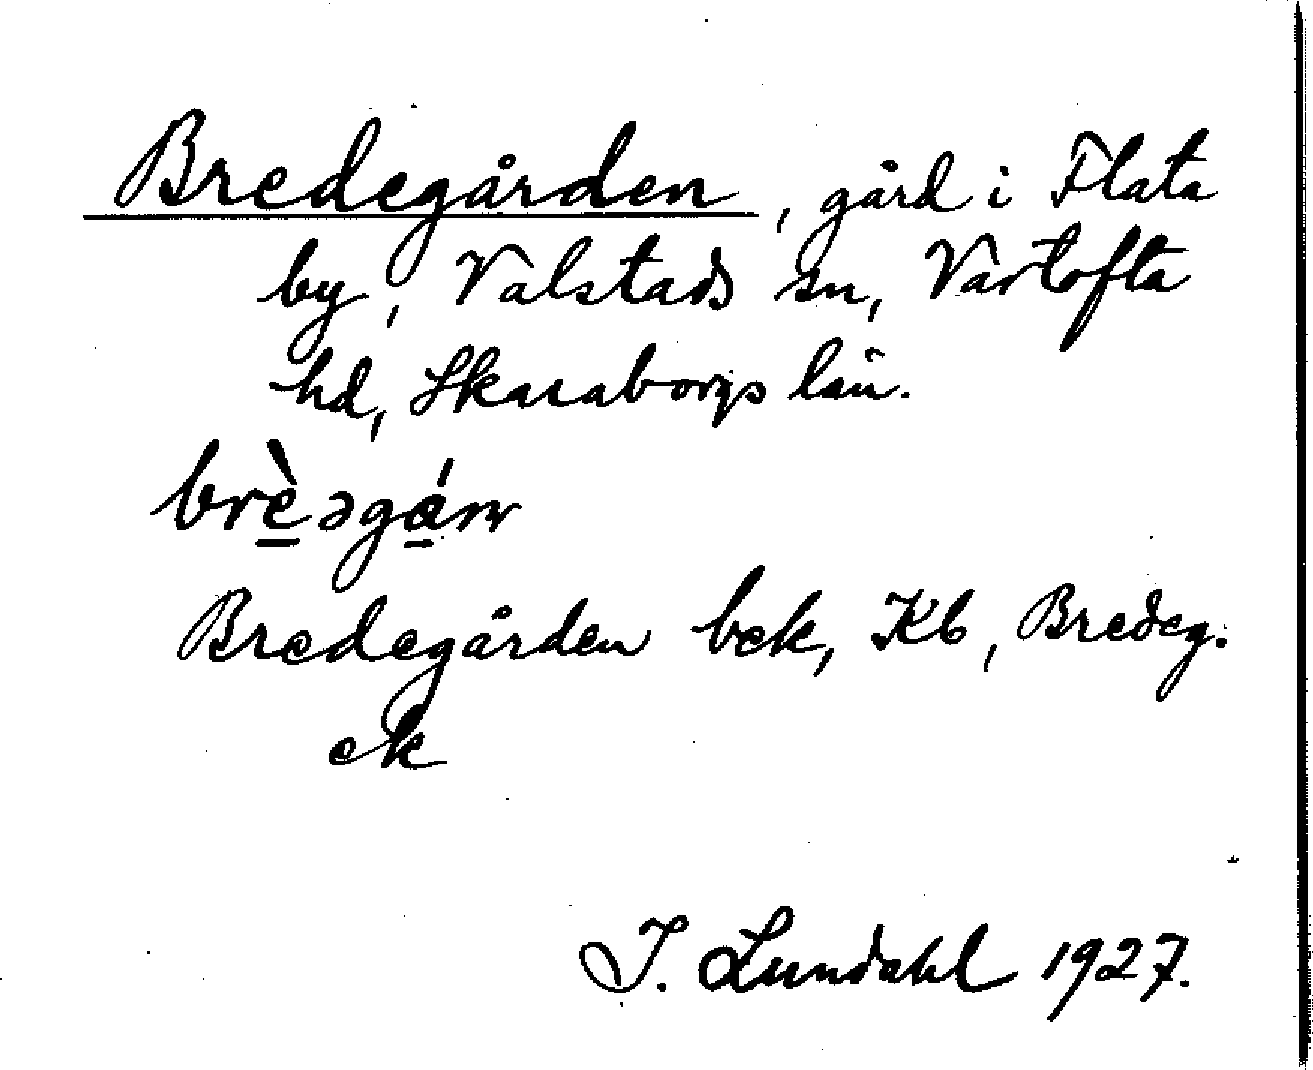 Bredegården, gård i Flata
by, Valstads sn, Vartofta
hd, Skaraborgs län.
brè̱əgá̱rn
Bredegården bek, Kb, Bredeg.
ek
I. Lundahl 1927.